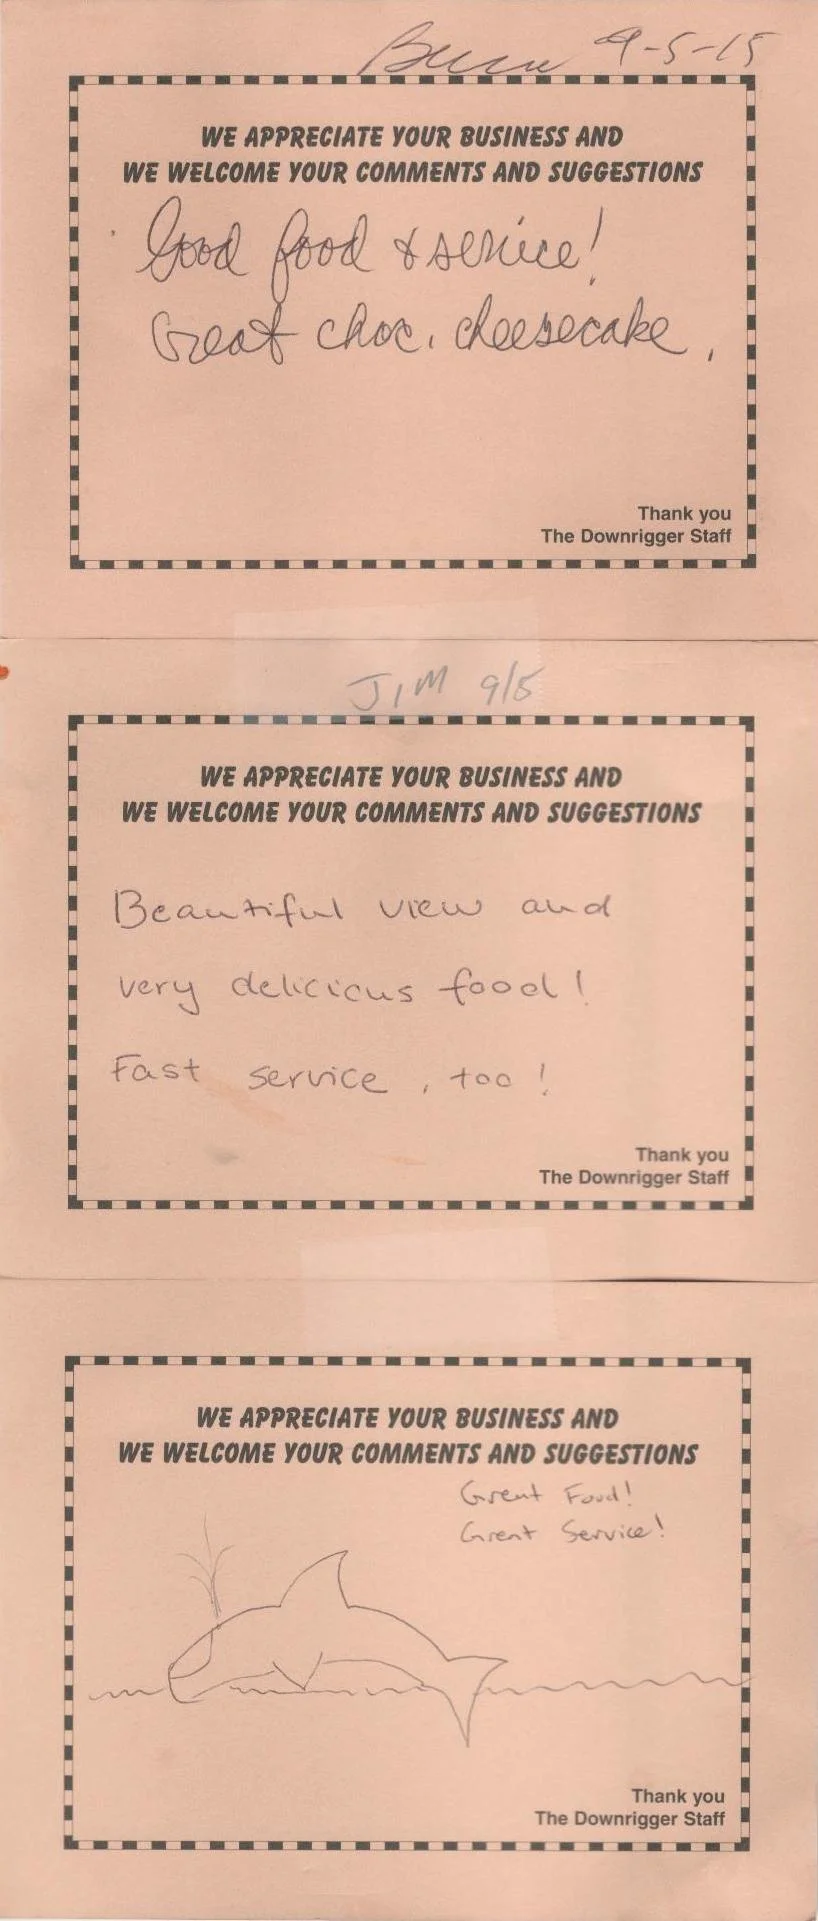 9-5-15
WE APPRECIATE YOUR BUSINESS AND
WE WELCOME YOUR COMMENTS AND SUGGESTIONS
Good food & service!
Great choc. cheesecake.
Thank you
The Downrigger Staff
JIM 9/5
WE APPRECIATE YOUR BUSINESS AND
WE WELCOME YOUR COMMENTS AND SUGGESTIONS
Beautiful view and
very delicious food!
Fast service, too!
Thank you
The Downrigger Staff
WE APPRECIATE YOUR BUSINESS AND
WE WELCOME YOUR COMMENTS AND SUGGESTIONS
Great Food!
Great Service!
Thank you
The Downrigger Staff